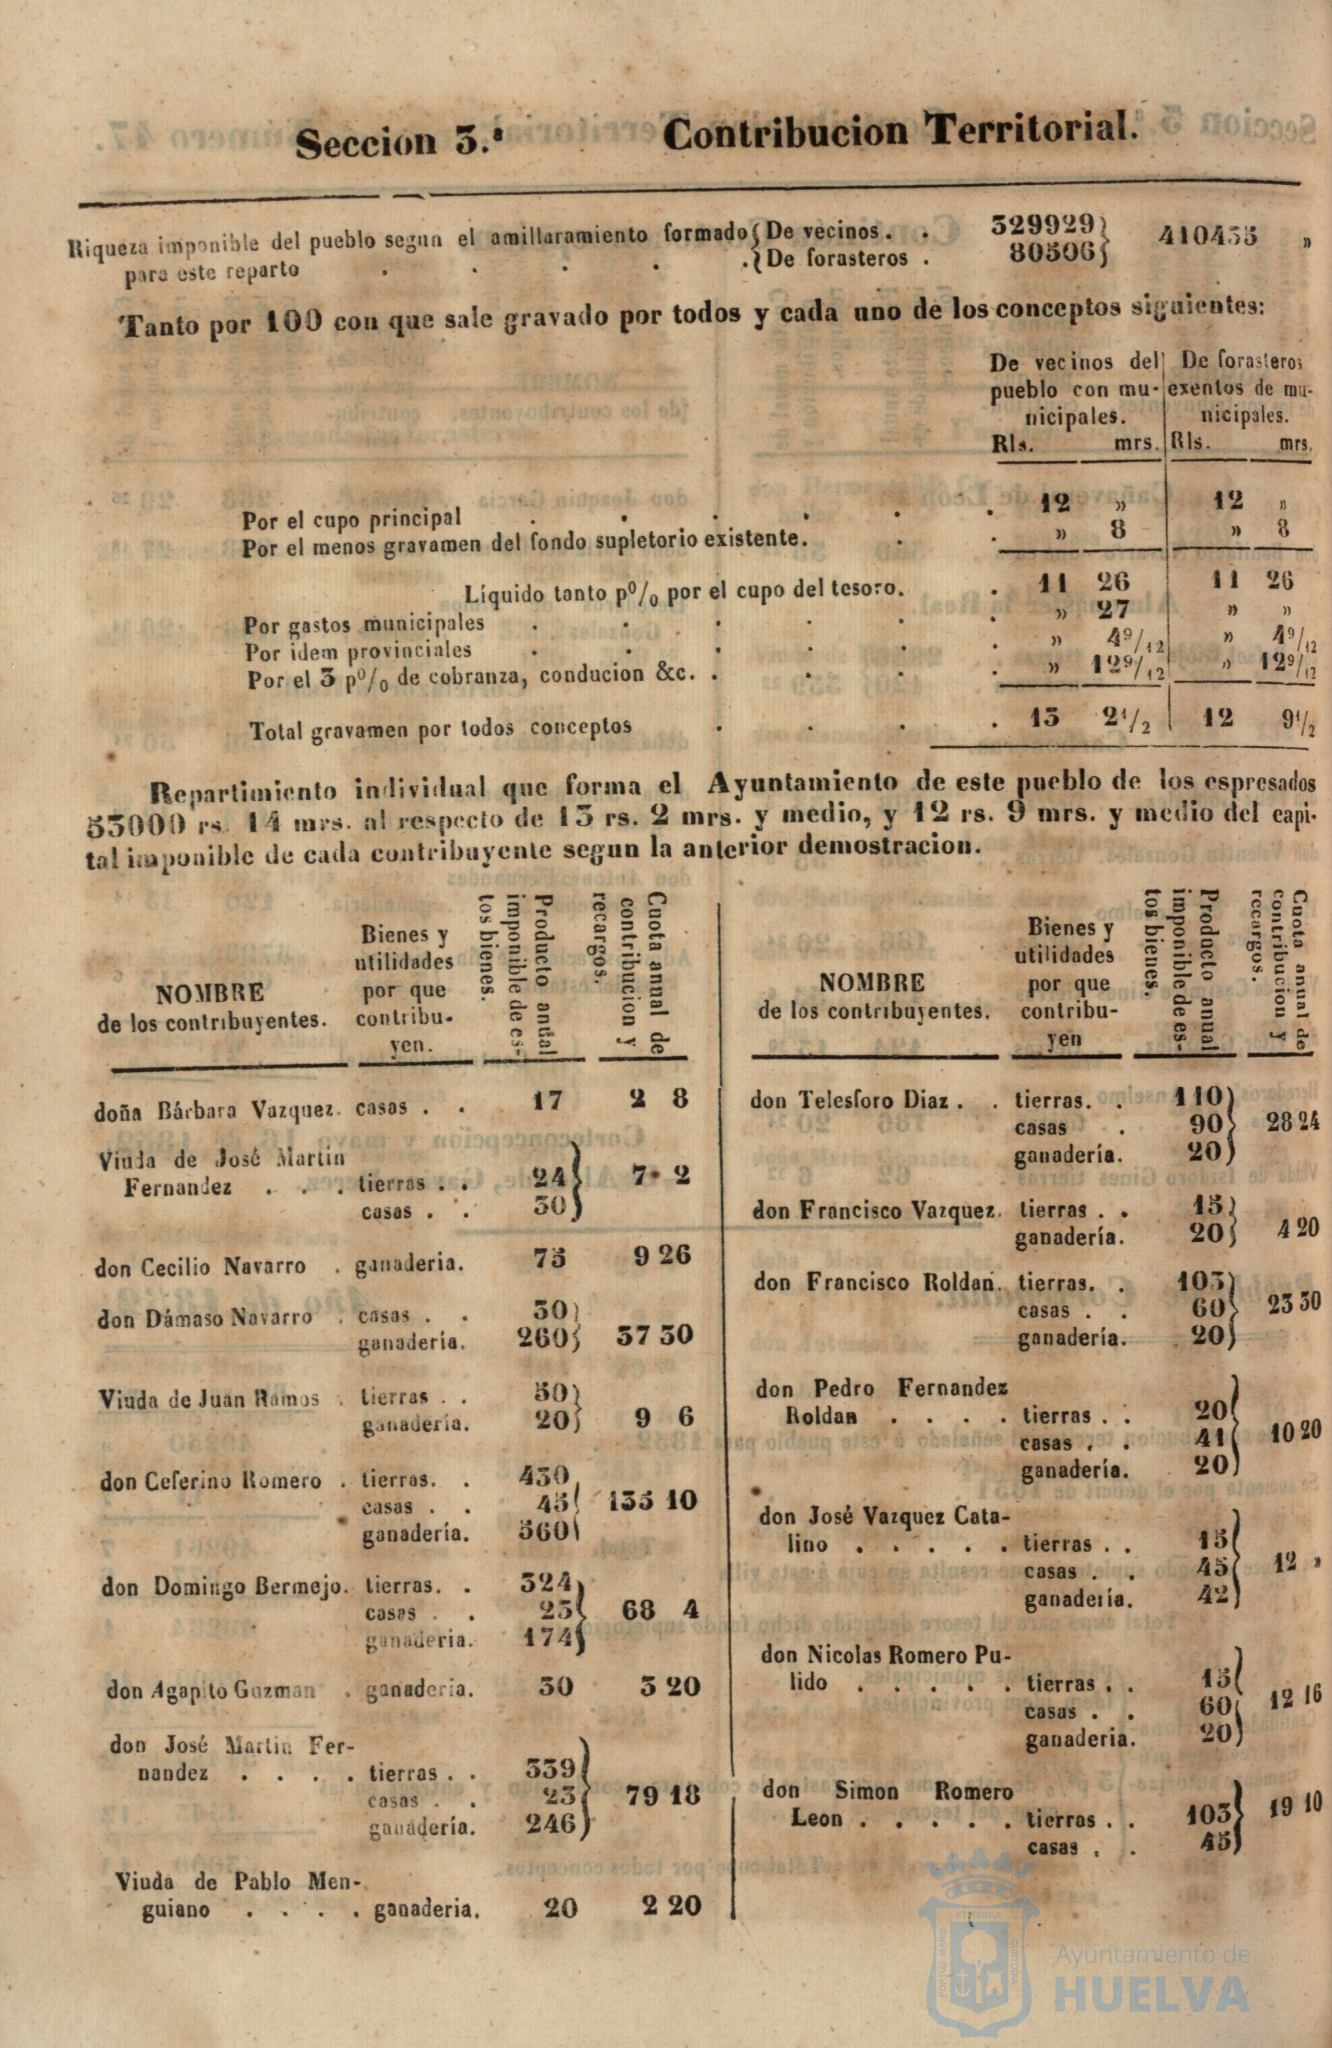 Seccion 3.ª Contribucion Territorial.
Riqueza imponible del pueblo segun el amillaramiento formado { De vecinos . . 329929 } 410435 „
para este reparto . . . . . { De forasteros . 80506 }
Tanto por 100 con que sale gravado por todos y cada uno de los conceptos siguientes:
De vecinos del De forasteros
pueblo con mu- exentos de mu-
nicipales. nicipales.
Rls. mrs. Rls. mrs.
Por el cupo principal . . . . . . 12 „ 12 „
Por el menos gravamen del fondo supletorio existente. . . „ 8 „ 8
Líquido tanto pº/0 por el cupo del tesoro. . 11 26 11 26
Por gastos municipales . . . . . . „ 27 „ „
Por idem provinciales . . . . . . „ 4 9/12 „ 4 9/12
Por el 3 pº/0 de cobranza, conducion &c. . . . . „ 12 9/12 „ 12 9/12
Total gravamen por todos conceptos . . . . 13 2 1/2 12 9 1/2
Repartimiento individual que forma el Ayuntamiento de este pueblo de los espresados
53000 rs. 14 mrs. al respecto de 13 rs. 2 mrs. y medio, y 12 rs. 9 mrs. y medio del capi-
tal imponible de cada contribuyente segun la anterior demostracion.
NOMBRE
de los contribuyentes.
Bienes y
utilidades
por que
contribu-
yen.
Producto anual
imponible de es-
tos bienes.
Cuota anual de
contribucion y
recargos.
doña Bárbara Vazquez. casas . . 17 2 8
Viuda de José Martin
Fernandez . . . tierras . . 24 } 7 2
casas . . 30 }
don Cecilio Navarro . ganaderia. 75 9 26
don Dámaso Navarro . casas . . 30 }
ganadería. 260 } 37 30
Viuda de Juan Ramos . tierras . . 50 }
ganadería. 20 } 9 6
don Ceferino Romero . tierras. . 430
casas . . 45 } 135 10
ganadería. 560
don Domingo Bermejo. tierras. . 324
casas . . 23 } 68 4
ganaderia. 174
don Agapito Guzman . ganaderia. 30 3 20
don José Martin Fer-
nandez . . . . tierras . . 339
casas . . 23 } 79 18
ganadería. 246
Viuda de Pablo Men-
guiano . . . . ganaderia. 20 2 20
NOMBRE
de los contribuyentes.
Bienes y
utilidades
por que
contribu-
yen
Producto anual
imponible de es-
tos bienes.
Cuota anual de
contribucion y
recargos.
don Telesforo Diaz . . tierras. . 110
casas . 90 } 28 24
ganadería. 20
don Francisco Vazquez. tierras . . 15
ganadería. 20 } 4 20
don Francisco Roldan. tierras. . 103
casas . . 60 } 23 30
ganadería. 20
don Pedro Fernandez
Roldan . . . . tierras . . 20
casas . . 41 } 10 20
ganadería. 20
don José Vazquez Cata-
lino . . . . . tierras . . 15
casas . . 45 } 12 „
ganadería. 42
don Nicolas Romero Pu-
lido . . . . . tierras . . 15
casas . . 60 } 12 16
ganaderia. 20
don Simon Romero
Leon . . . . . tierras . . 103 } 19 10
casas . . 45
PORTUS MARIS
ET TERRÆ
CUSTODIA
Ayuntamiento de
HUELVA